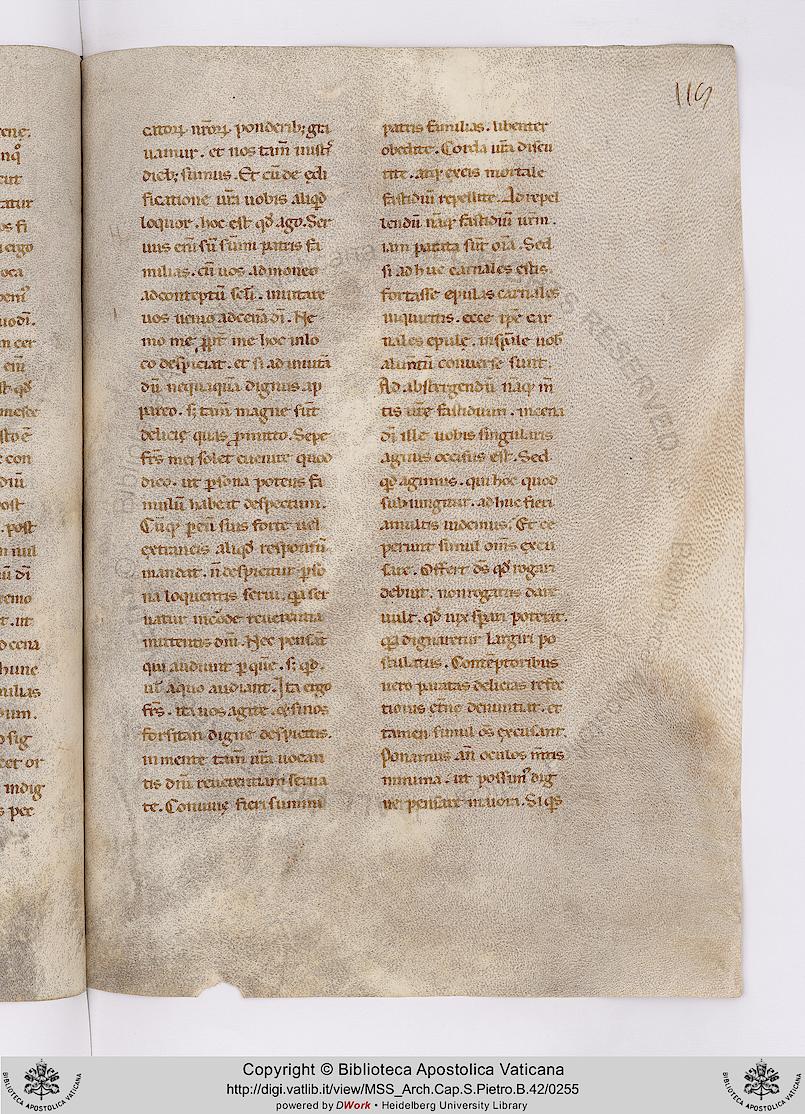 119
catoꝝ nr̄oꝝ ponderib; gra
uamur . et nos tam̄ iustꝰ
dieb; sumus . Et cū de ędi
ficatione ur̄a uobis aliqd
loquor . hoc est qđ ago . Ser
uus eni sū sūmi patris fa
milias . cū uos admoneo
adcontēptū sc̄li . inuitare
uos uenio adcenā dī . Ne
mo me ꝓpt me hoc inlo
co despiciat . et si ad inuitā
dū nequaquā dignus ap
pareo . s; tam̄ magne sūt
delicię quas ꝓmitto . Sepe
fr̄s mei solet euenire quod
dico . ut ꝑsona potens fa
mulū habeat despectum .
Cūq; ꝑ eū suis forte uel
extraneis aliqd responsū
mandat . n̄ despicitur ꝑso
na loquentis serui . quia ser
uatur incorde reuerentia
mittentis dn̄i . Nec pensāt
qui audiunt ꝑ quē . s; qđ .
ul̄ aquo audiant . Ita ergo
fr̄s . ita uos agite . et si nos
forsitan digne despicitis .
in mente tam̄ ur̄a uocan
tis dn̄i reuerentiam serua
te . Conuiuę fieri summi
patris familias . libenter
obedite . Corda ur̄a discu
tite . atq; ex eis mortale
fastidiū repellite . Ad repel
lendū nāq; fastidiū ur̄m .
iam parata sūt om̄ia . Sed
si adhuc carnales estis .
fortasse epulas carnales
inquiritis . ecce ipse car
nales epule . inspūale uob
alimtū conuerse sunt .
Ad abstergendū naq; m̄
tis ur̄e fastidium . incena
dī ille uobis singularis
agnus occisus est . Sed
qđ agimus . qui hoc quod
subiungitur . adhuc fieri
amultis uidemus ; Et ce
perunt simul om̄s excu
sare . Offert dš qđ rogari
debuit . non rogatus dare
uult . qđ uix sꝑari poterat .
qa dignaretur largiri po
stulatus . Contēptoribus
uero paratas delicias refec
tionis etn̄ę denuntiat . et
tamen simul oš excusant .
Ponamus an̄ oculos m̄tis
minima . ut possimꝰ dig
ne pensare maiora . Si qš
Copyright © Biblioteca Apostolica Vaticana
http://digi.vatlib.it/view/MSS_Arch.Cap.S.Pietro.B.42/0255
powered by DWork • Heidelberg University Library